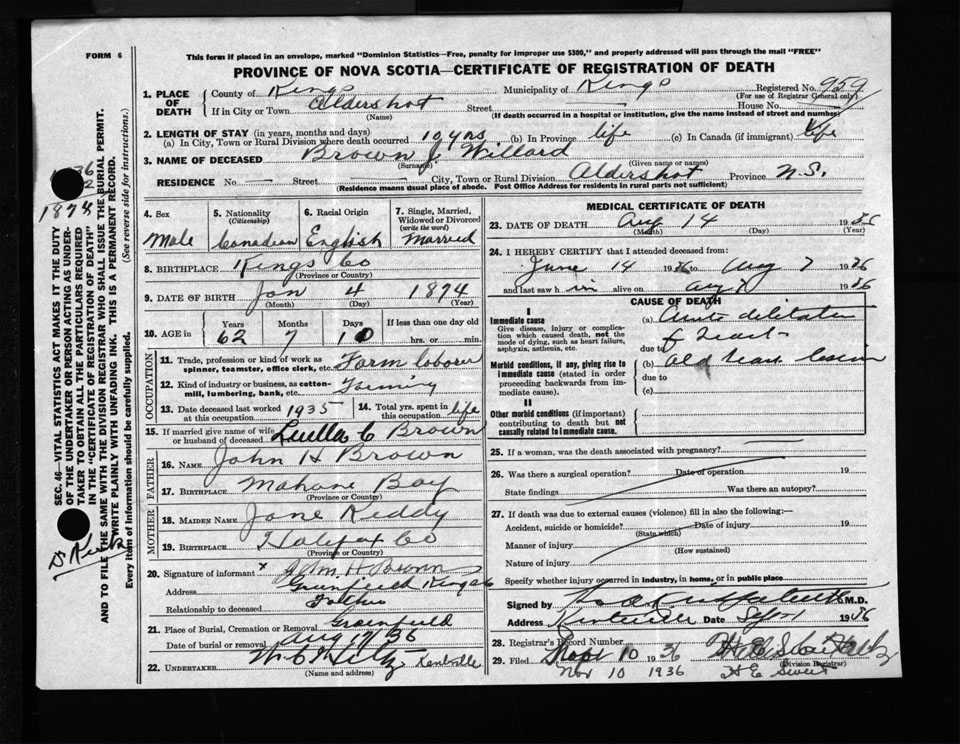 FORM 6
This form if placed in an envelope, marked "Dominion Statistics—Free, penalty for improper use $300," and properly addressed will pass through the mail "FREE"
PROVINCE OF NOVA SCOTIA—CERTIFICATE OF REGISTRATION OF DEATH
1. PLACE OF DEATH
County of Kings Municipality of Kings Registered No. 959
(For use of Registrar General only)
If in City or Town Aldershot Street House No.
(Name) (If death occurred in a hospital or institution, give the name instead of street and number)
2. LENGTH OF STAY (in years, months and days)
(a) In City, Town or Rural Division where death occurred 10 yrs (b) In Province life (c) In Canada (if immigrant) life
3. NAME OF DECEASED Brown J. Willard
(Surname) (Given name or names)
RESIDENCE No. — Street — City, Town or Rural Division Aldershot Province N.S.
(Residence means usual place of abode. Post Office Address for residents in rural parts not sufficient)
4. Sex
Male
5. Nationality
(Citizenship)
Canadian
6. Racial Origin
English
7. Single, Married, Widowed or Divorced
(write the word)
Married
8. BIRTHPLACE Kings Co
(Province or Country)
9. DATE OF BIRTH Jan 4 1874
(Month) (Day) (Year)
10. AGE in
Years Months Days If less than one day old
62 7 10 hrs. or min.
OCCUPATION
11. Trade, profession or kind of work as spinner, teamster, office clerk, etc. Farm laborer
12. Kind of industry or business, as cotton-mill, lumbering, bank, etc. Farming
13. Date deceased last worked at this occupation 1935
14. Total yrs. spent in this occupation life
15. If married give name of wife or husband of deceased Luella C Brown
FATHER
16. NAME John H Brown
17. BIRTHPLACE Mahone Bay
(Province or Country)
MOTHER
18. MAIDEN NAME Jane Reddy
19. BIRTHPLACE Halifax Co
(Province or Country)
20. Signature of informant x John H Brown
Address Greenfield Kings Co
Relationship to deceased Father
21. Place of Burial, Cremation or Removal Greenfield
Date of burial or removal Aug 17 36
22. UNDERTAKER Kentville
(Name and address)
MEDICAL CERTIFICATE OF DEATH
23. DATE OF DEATH Aug 14 1936
(Month) (Day) (Year)
24. I HEREBY CERTIFY that I attended deceased from:
June 14 1936 to Aug 7 1936
and last saw h im alive on Aug 7 1936
CAUSE OF DEATH
I
Immediate cause
Give disease, injury or complication which caused death, not the mode of dying, such as heart failure, asphyxia, asthenia, etc.
(a) Acute dilitation of Heart
due to
Morbid conditions, if any, giving rise to immediate cause (stated in order proceeding backwards from immediate cause).
(b) Old heart lesion
due to
(c)
II
Other morbid conditions (if important) contributing to death but not causally related to immediate cause.
25. If a woman, was the death associated with pregnancy?
26. Was there a surgical operation? Date of operation 19
State findings Was there an autopsy?
27. If death was due to external causes (violence) fill in also the following:—
Accident, suicide or homicide? Date of injury 19
(State which)
Manner of injury
(How sustained)
Nature of injury
Specify whether injury occurred in industry, in home, or in public place
Signed by M.D.
Address Kentville Date Sept 1936
28. Registrar's Record Number
29. Filed Sept 10 1936
(Division Registrar)
Nov 10 1936 H E Sweet
SEC. 46—VITAL STATISTICS ACT MAKES IT THE DUTY OF THE UNDERTAKER OR PERSON ACTING AS UNDERTAKER TO OBTAIN ALL THE PARTICULARS REQUIRED IN THE "CERTIFICATE OF REGISTRATION OF DEATH" AND TO FILE THE SAME WITH THE DIVISION REGISTRAR WHO SHALL ISSUE THE BURIAL PERMIT.
WRITE PLAINLY WITH UNFADING INK. THIS IS A PERMANENT RECORD.
Every item of information should be carefully supplied. (See reverse side for instructions.)
36
2
1874